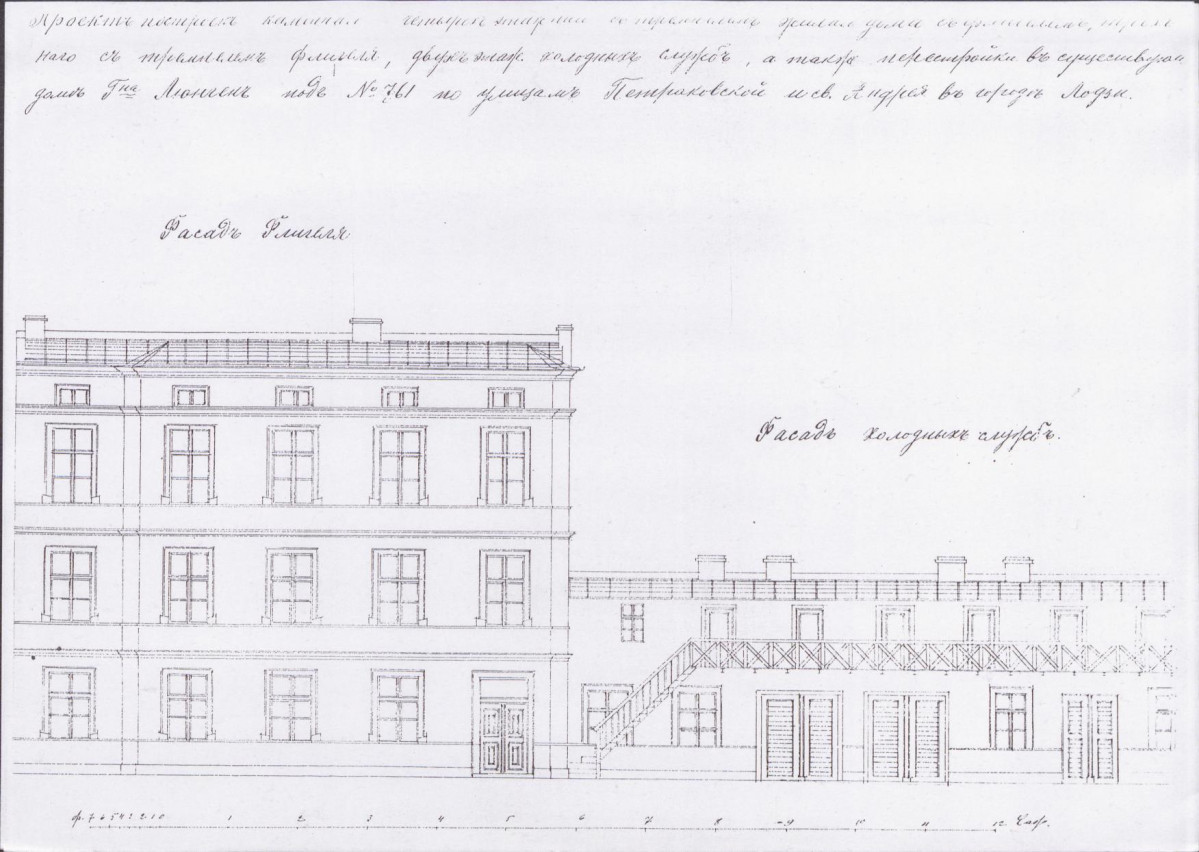 Проектъ построекъ каменнаго четырехъ этажнаго со тремпелемъ жилаго дома съ флигелемъ,
наго съ тремпелемъ флигеля, двухъ этаж. холодныхъ службъ, а также перестройки въ существующ
домѣ Гна Люнгенъ подъ № 761 по улицамъ Петроковской и св. Андрея въ городѣ Лодзи.
Фасадъ Флигеля
Фасадъ холодныхъ службъ.
ф. 7 6 5 4 3 2 1 0 1 2 3 4 5 6 7 8 9 10 11 12 Саж.